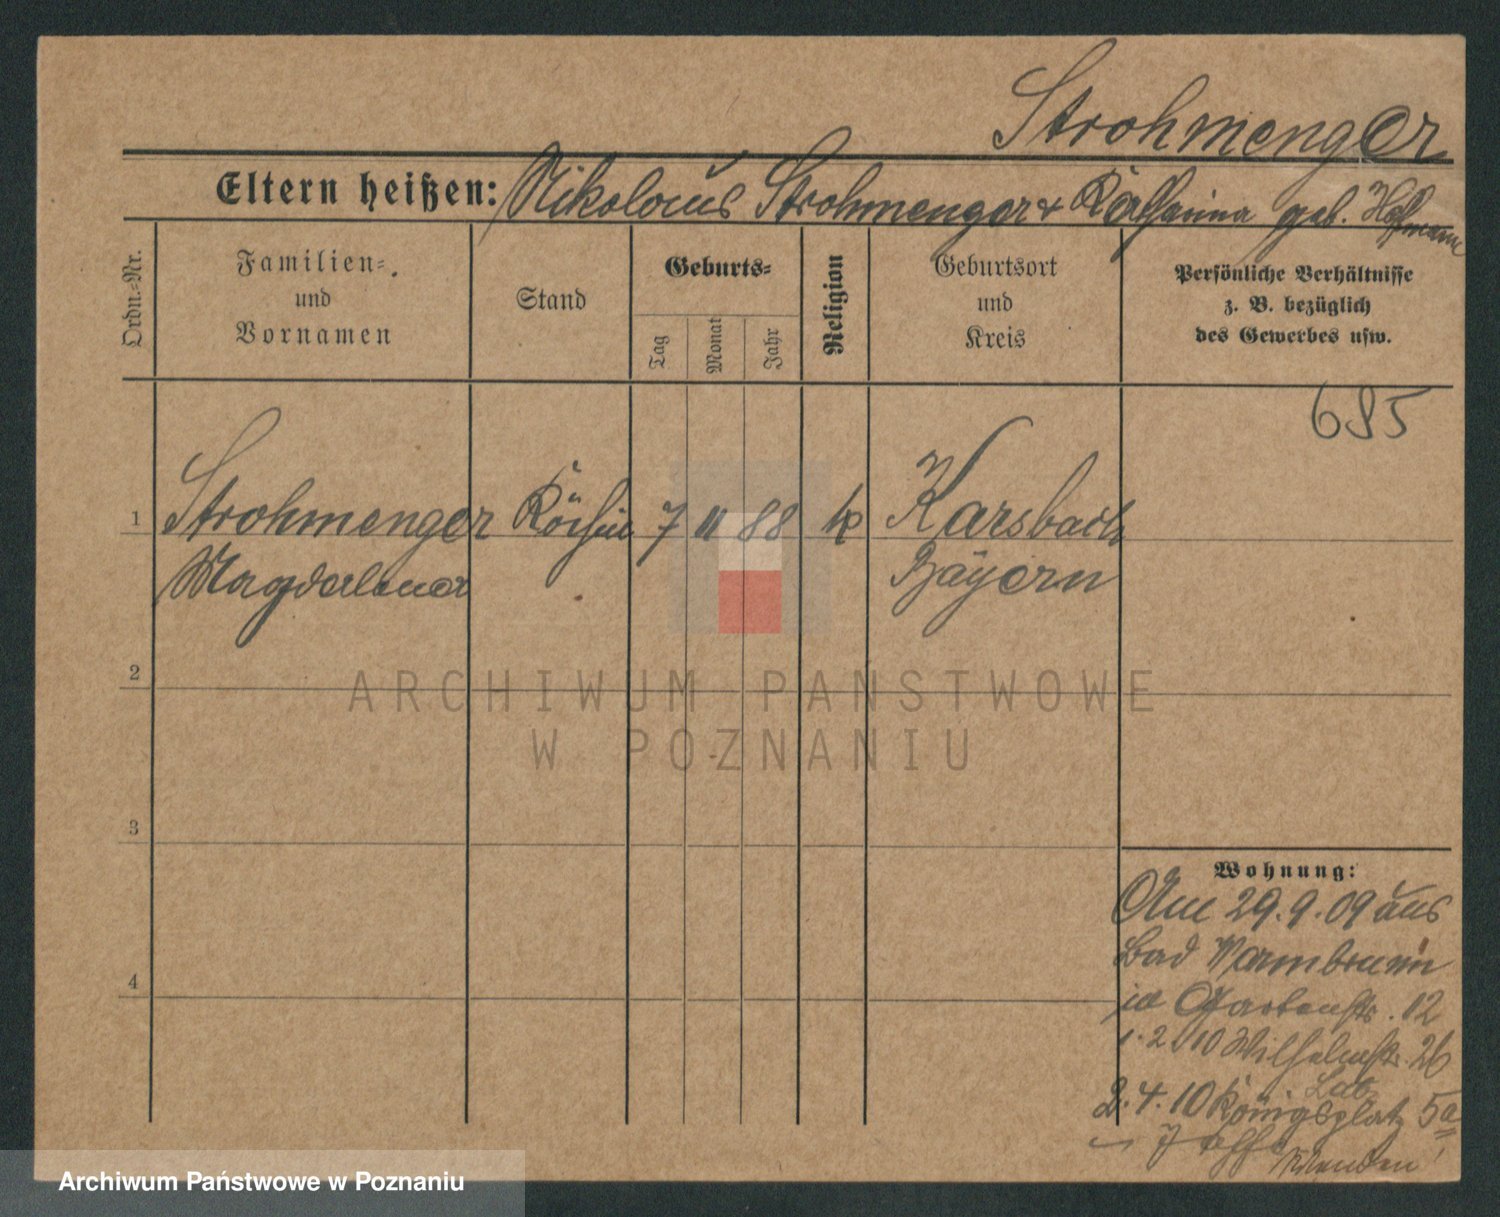 Strohmenger
Eltern heißen: Nikolaus Strohmenger & Katharina geb. Hofmann
Ordn.-Nr.
Familien-
und
Vornamen
Stand
Geburts-
Tag
Monat
Jahr
Religion
Geburtsort
und
Kreis
Persönliche Verhältnisse
z. B. bezüglich
des Gewerbes usw.
685
1 Strohmenger Köchin 7 11 88 k Karsbach
Magdalena Bayern
2
3
4
ARCHIWUM PAŃSTWOWE
W POZNANIU
Wohnung:
Am 29.9.09 aus
Bad Warmbrunn
in Gartenstr. 12
1.2.10 Wilhelmstr. 26
2.4.10 Königsplatz 5a
Archiwum Państwowe w Poznaniu